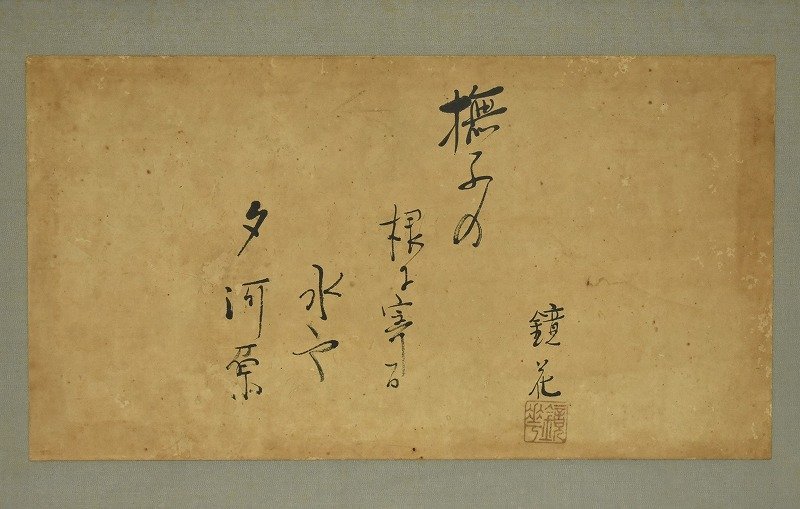 鏡花
撫子の
根に寄る
水や
夕河原
鏡花